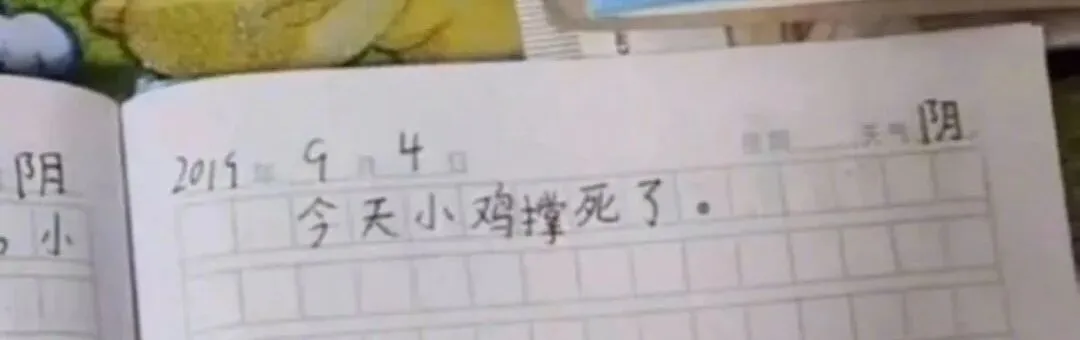 阴
小
2019年 9月 4日 星期 天气 阴
今天小鸡撑死了。